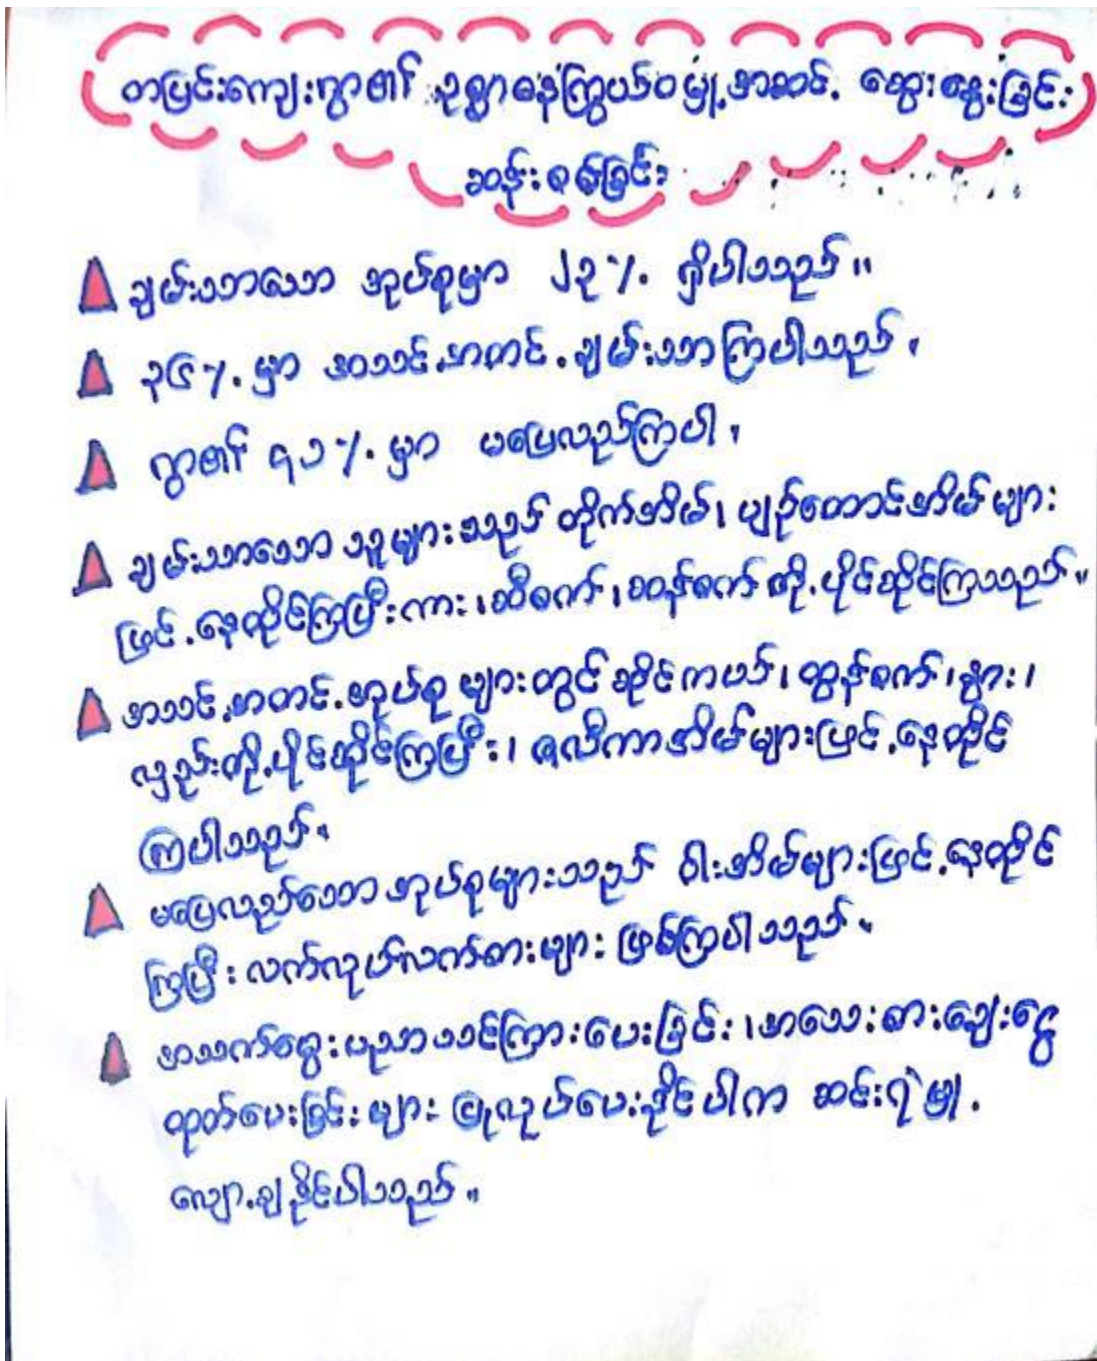 တမြင်းကျေးရွာ၏ ဥစ္စာဓနကြွယ်ဝမှု့အဆင့် ဆွေးနွေးခြင်း
ဆန်းစစ်ခြင်း
ချမ်းသာသော အုပ်စုမှာ ၂၃% ရှိပါသည်။
၃၆% မှာ အသင့်အတင့်ချမ်းသာကြပါသည်။
ရွာ၏ ၄၁% မှာ မပြေလည်ကြပါ။
ချမ်းသာသော သူများသည် တိုက်အိမ်၊ ပျဉ်ထောင်အိမ်များ
ဖြင့်နေထိုင်ကြပြီးကား၊ဆီစက်၊ဆန်စက်တို့ပိုင်ဆိုင်ကြသည်။
အသင့်အတင့်အုပ်စုများတွင်ဆိုင်ကယ်၊ထွန်စက်၊နွား၊
လှည်းတို့ပိုင်ဆိုင်ကြပြီး၊ ဇလီကာအိမ်များဖြင့်နေထိုင်
ကြပါသည်။
မပြေလည်သောအုပ်စုများသည် ဝါးအိမ်များဖြင့်နေထိုင်
ကြပြီး လက်လုပ်လက်စားများ ဖြစ်ကြပါသည်။
အသက်မွေးပညာသင်ကြားပေးခြင်း၊အသေးစားချေးငွေ
ထုတ်ပေးခြင်းများ ပြုလုပ်ပေးနိုင်ပါက ဆင်းရဲမှု့
လျော့ချနိုင်ပါသည်။